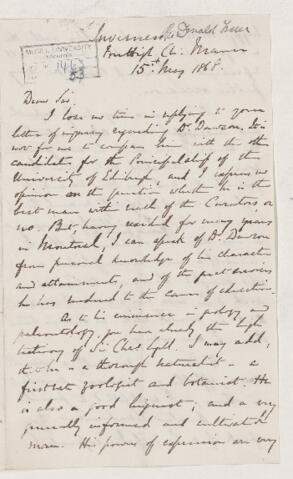 McGILL UNIVERSITY
ARCHIVES
Inverness
Donald Fraser
15th May 1868.
Dear Sir
I lose no time in replying to your
letter of inquiry regarding Dr. Dawson. It is
not for me to compare him with the other
candidates for the Principalship of the
University of Edinbugh, and I express no
opinion on the question whether he is the
best man with much of the Curators or
no. But, having resided for many years
in Montreal, I can speak of Dr. Dawson
from personal knowledge of his character
and attainments, and of the great services
he has rendered to the cause of education.
As to his eminence in geology and
palaeontology, you have already the high
testimony of Sir Chas Lyell. I may add,
a thorough naturalist - a
first-rate zoologist and botanist. He
is also a good linguist; and a very
generally informed and cultivated
man. His powers of expression are very